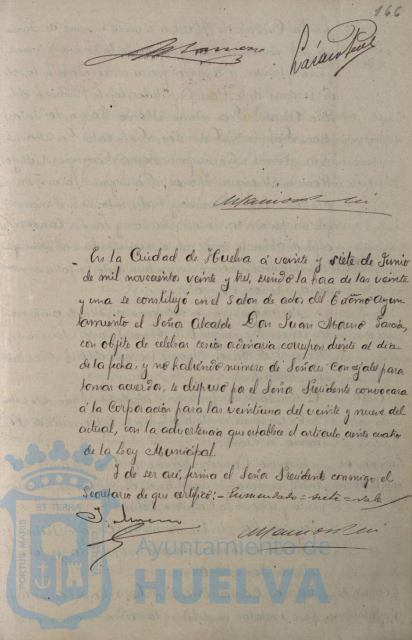 166
Lázaro
En la Ciudad de Huelva á veinte y siete de Junio
de mil novecientos veinte y tres, siendo la hora de las veinte
y una se constituyó en el Salon de actos del Excmo Ayun
tamiento el Señor Alcalde Don Juan García,
con objeto de celebrar cesion ordinaria correspondiente al dia
de la fecha, y no habiendo número de Señores Concejales para
tomar acuerdo, se dispuso por el Señor Presidente convocara
á la Corporación para las veintiuna del veinte y nueve del
actual, con la advertencia que establece el artículo ciento cuatro
de la Ley Municipal.
Y de ser así, firma el Señor Presidente conmigo el
Secretario de que certifico; - Enmendado = siete = vale
PORTUS MARIS ET TERRAE
Ayuntamiento de
HUELVA